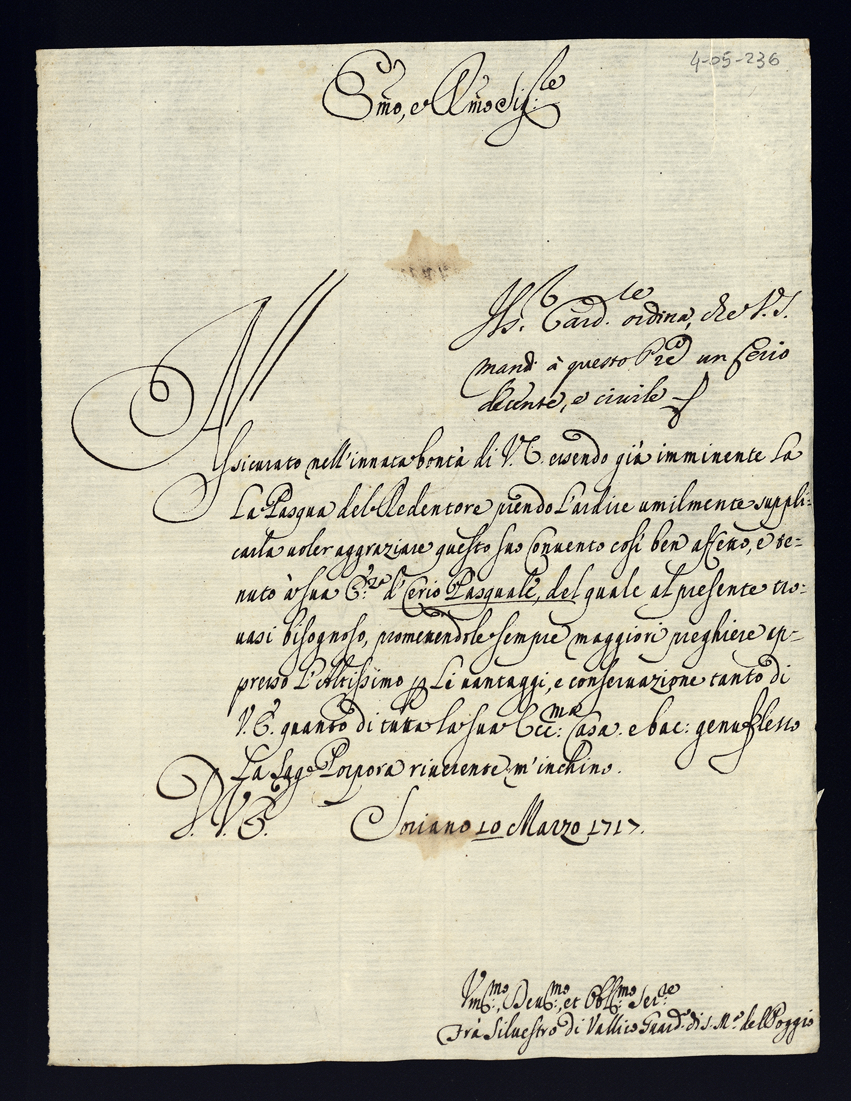 4-05-236
Em̃o, e Rm̃o Sig:re
Il S.r Card.le ordina, che V.S.
mandi à questo Pred.e un Cerio
decente, e civile
Assicurato nell'innata bontà di V.E. essendo già imminente La
La Pasqua del Redentore prendo l'ardire umilmente suppli=
carla voler aggraziare questo suo Convento così ben affetto, e te=
nuto à sua d'Cerio Pasquale, del quale al presente tro=
vasi bisognoso, promettendole sempre maggiori preghiere ap=
presso l'Altissimo p Li vantaggi, e conservazione tanto di
V.E. quanto di tutta la sua Ecc:ma Casa. e bac: genuflesso
La Sag.a Porpora riverente m'inchino.
D. V. E. Soriano 10 Marzo 1717.
Vm̃:mo, Deu:mo, et Obl:mo Ser:re
Frà Silvestro di Vallico Guard. di S. M.a del Poggio